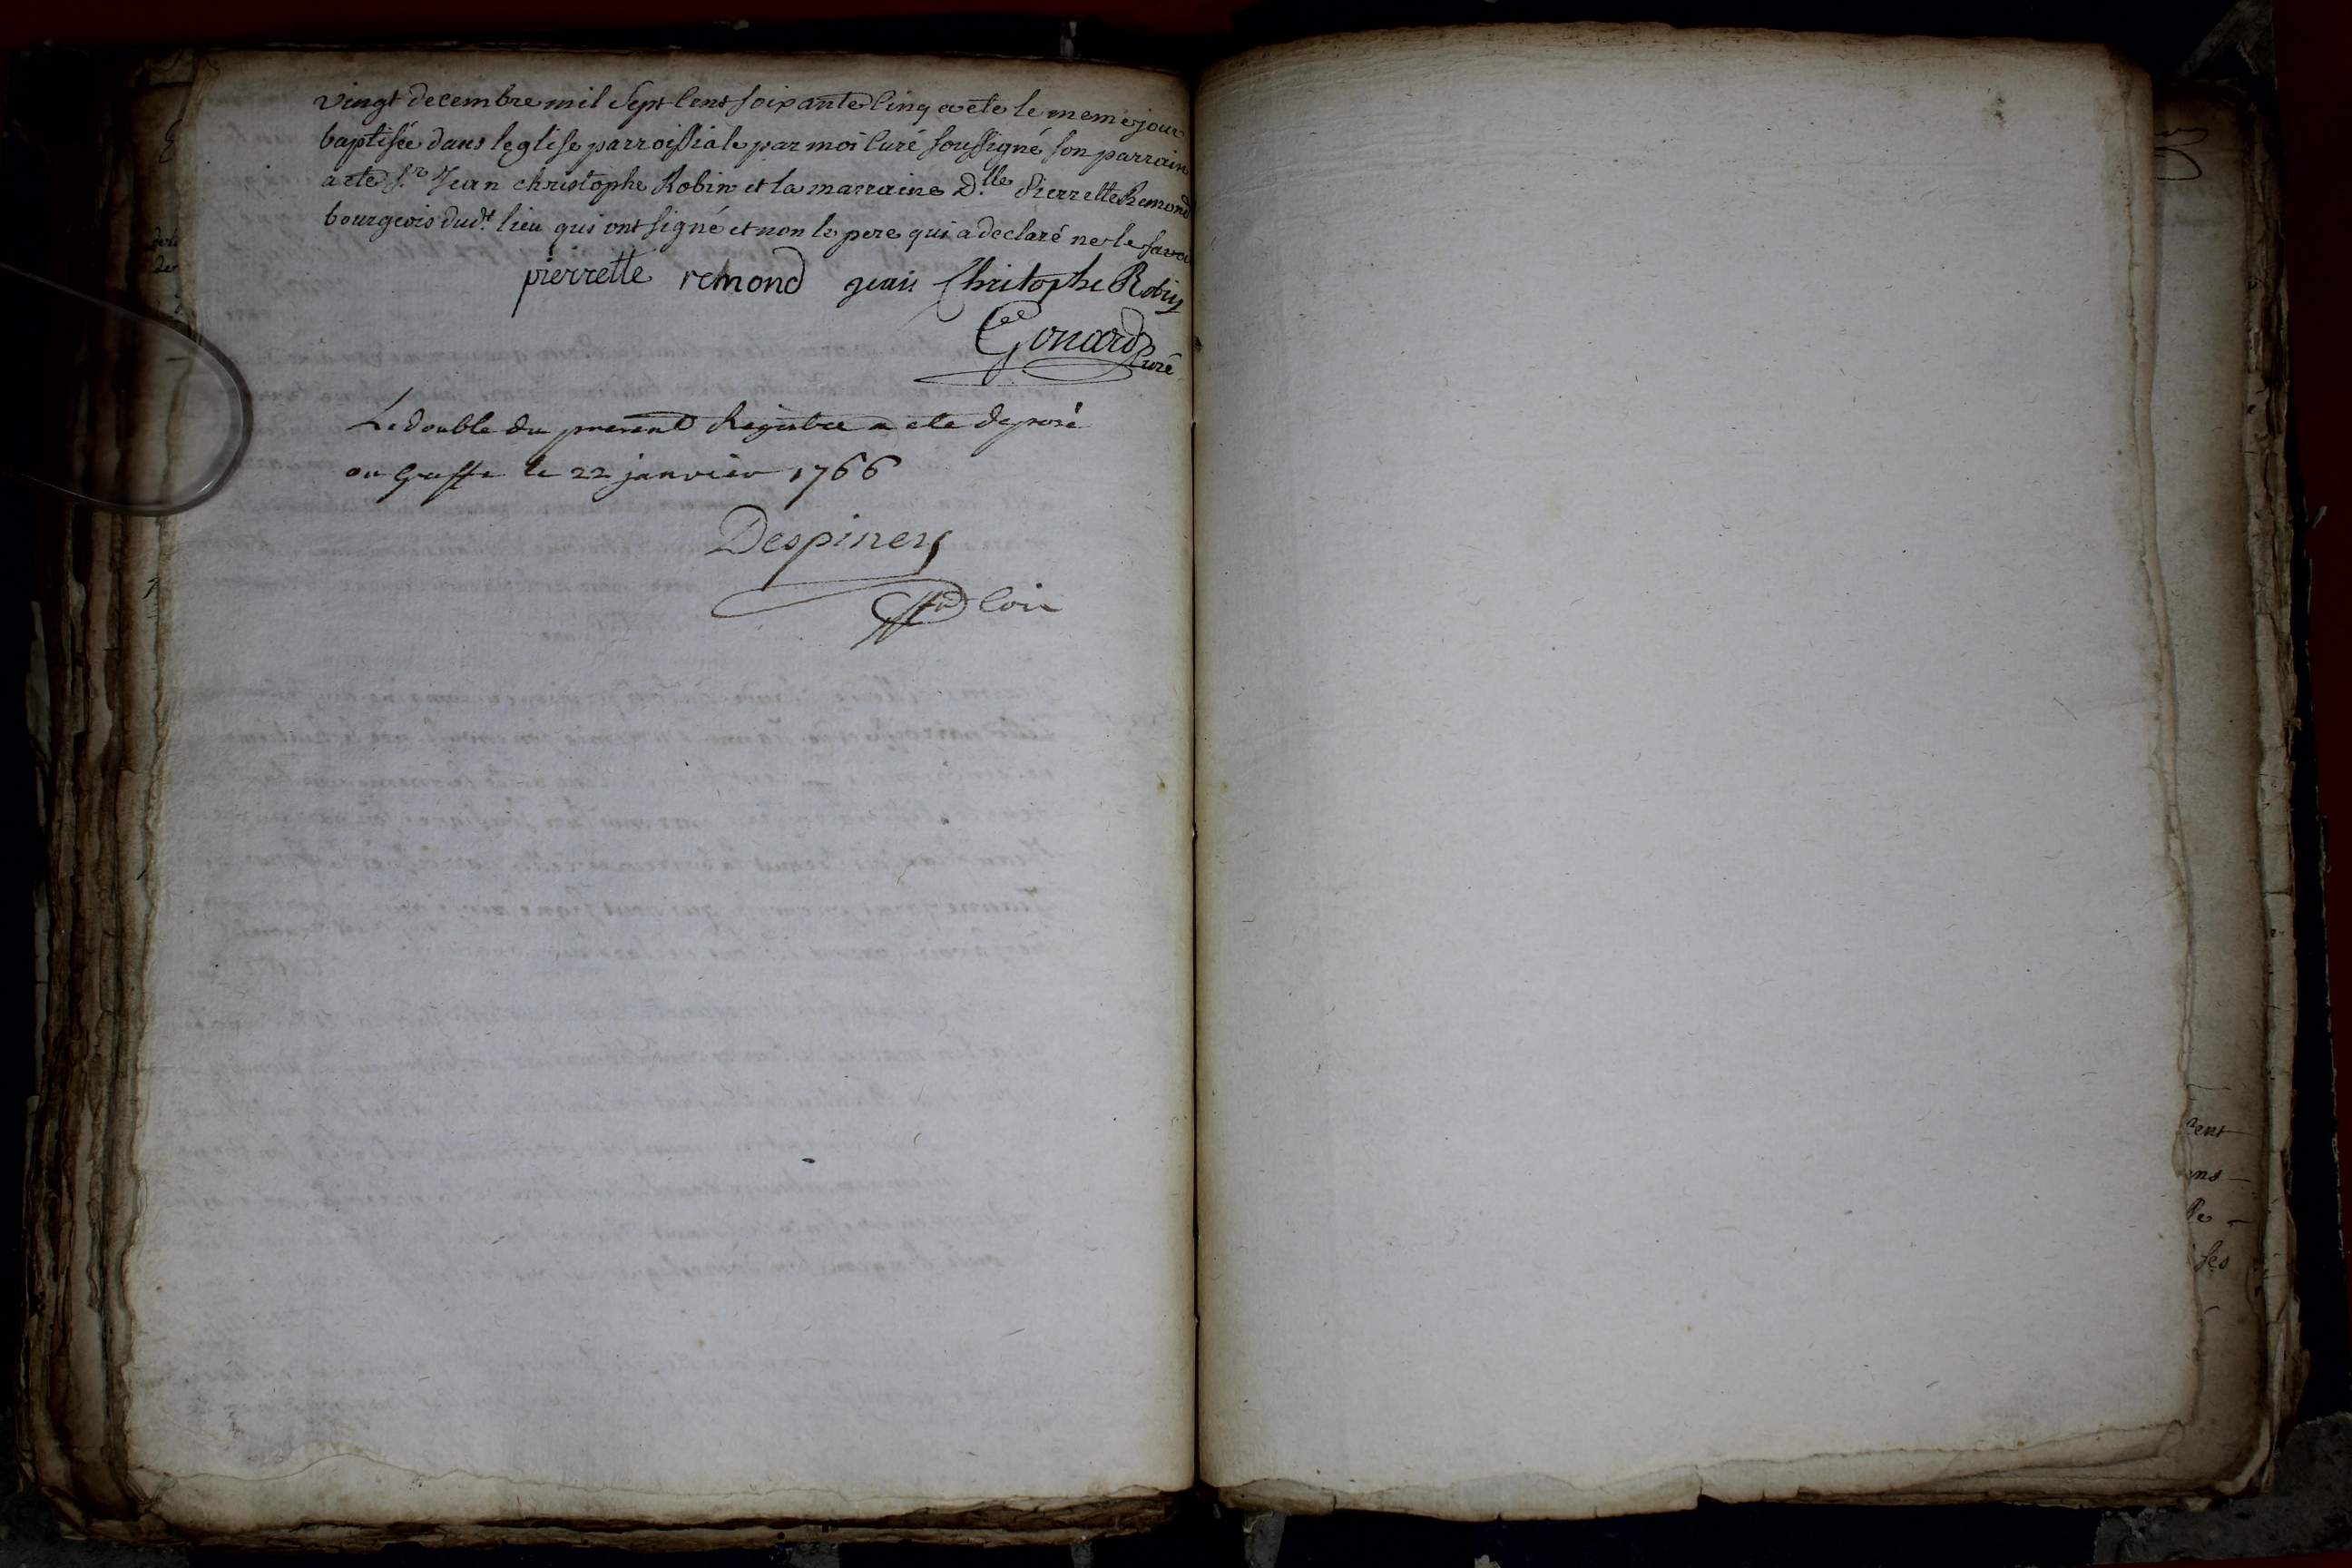 vingt decembre mil Sept Cent soixante Cinq a ete le meme jour
baptisée dans leglise parroissiale par moi Curé soussigné son parrain
a ete S.r Jean christophe Robin et la marraine D.lle Pierrette Remond
bourgeois dud.t lieu qui ont signé et non le pere qui a declaré ne le savoi
pierrette remond jean Christophe Robin
Gonard Curé
Le double du present Registre a ete deposé
au Greffe le 22 janvier 1766
Despiney
cent
ens
ses